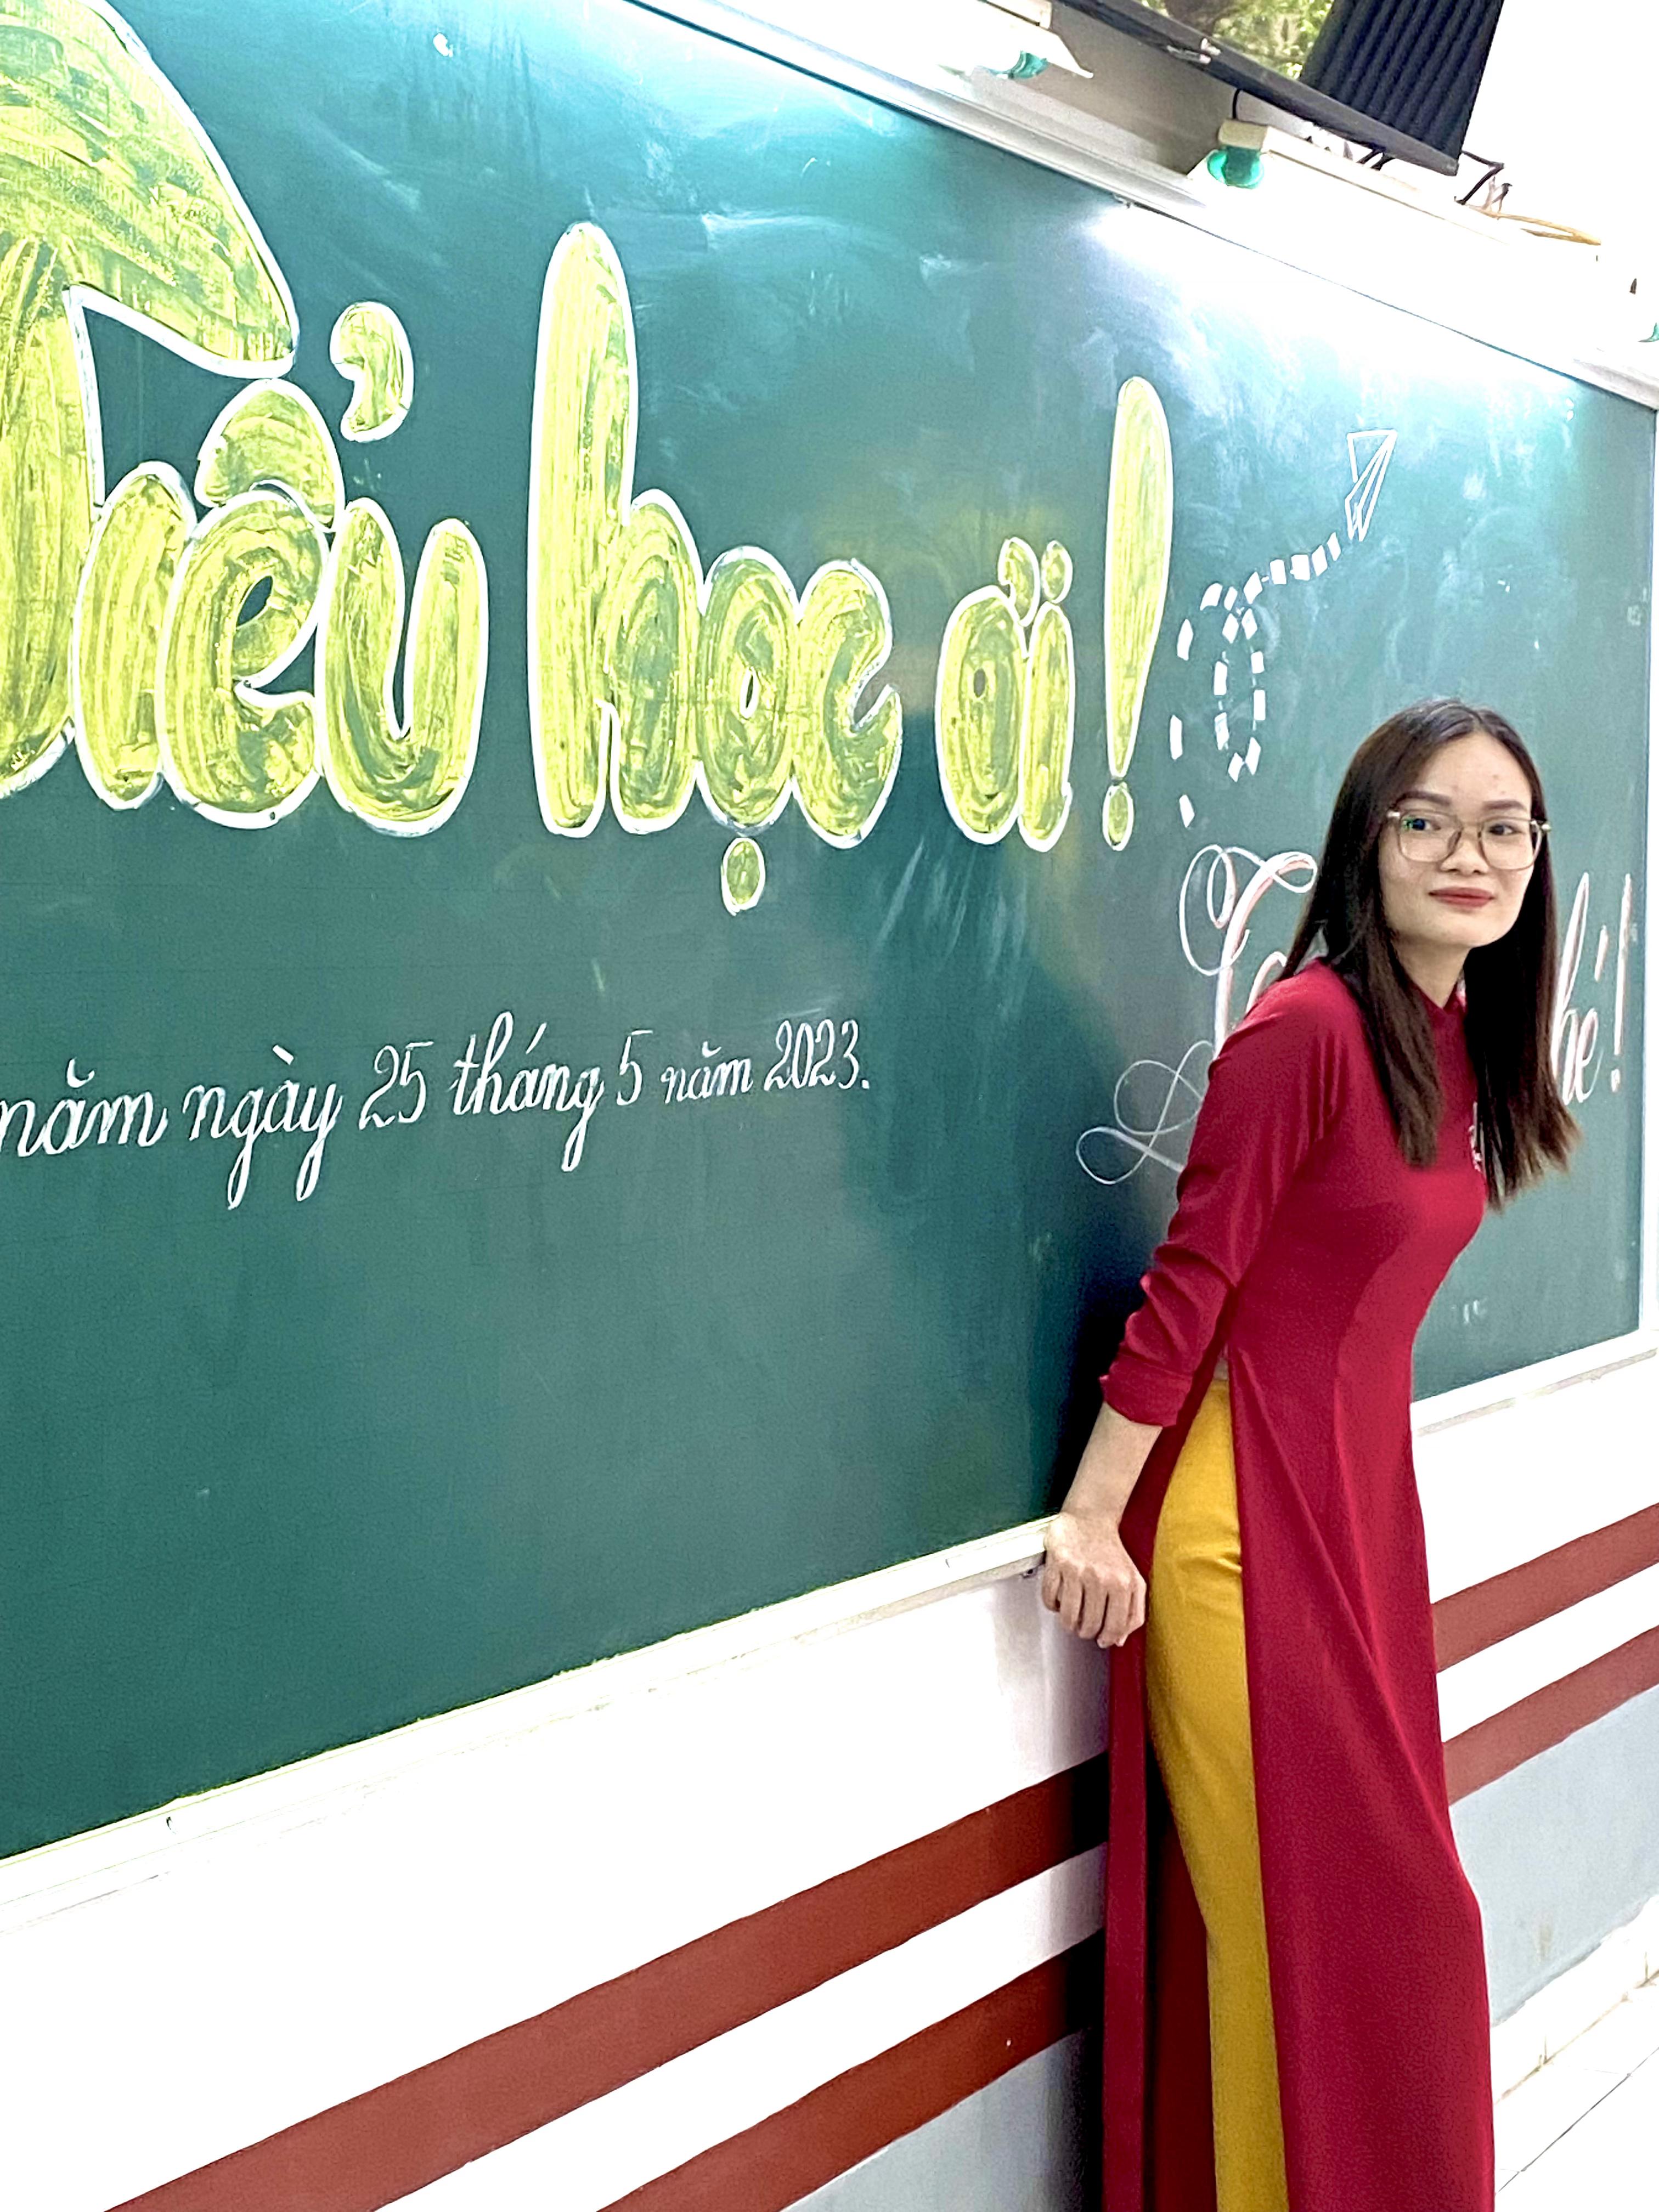 Tiểu học ơi!
năm ngày 25 tháng 5 năm 2023.